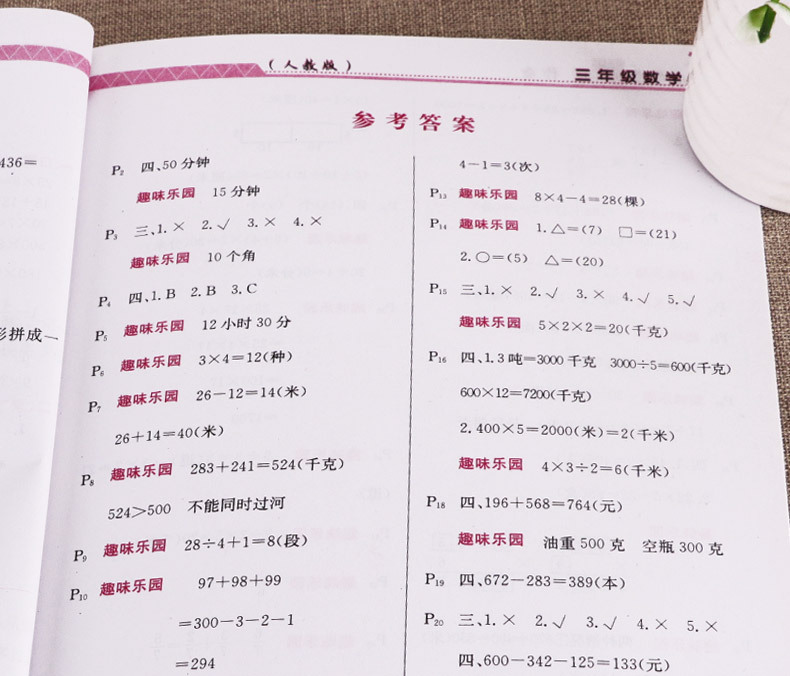 436=
形拼成一
(人教版)
三年级数学
参考答案
P₂ 四、50分钟
趣味乐园 15分钟
P₃ 三、1.× 2.√ 3.× 4.×
趣味乐园 10个角
P₄ 四、1.B 2.B 3.C
P₅ 趣味乐园 12小时30分
P₆ 趣味乐园 3×4=12(种)
P₇ 趣味乐园 26-12=14(米)
26+14=40(米)
P₈ 趣味乐园 283+241=524(千克)
524>500 不能同时过河
P₉ 趣味乐园 28÷4+1=8(段)
P₁₀ 趣味乐园 97+98+99
=300-3-2-1
=294
4-1=3(次)
P₁₃ 趣味乐园 8×4-4=28(棵)
P₁₄ 趣味乐园 1.△=(7) □=(21)
2.○=(5) △=(20)
P₁₅ 三、1.× 2.√ 3.× 4.√ 5.√
趣味乐园 5×2×2=20(千克)
P₁₆ 四、1.3吨=3000千克 3000÷5=600(千克)
600×12=7200(千克)
2.400×5=2000(米)=2(千米)
趣味乐园 4×3÷2=6(千米)
P₁₈ 四、196+568=764(元)
趣味乐园 油重500克 空瓶300克
P₁₉ 四、672-283=389(本)
P₂₀ 三、1.× 2.√ 3.√ 4.× 5.×
四、600-342-125=133(元)